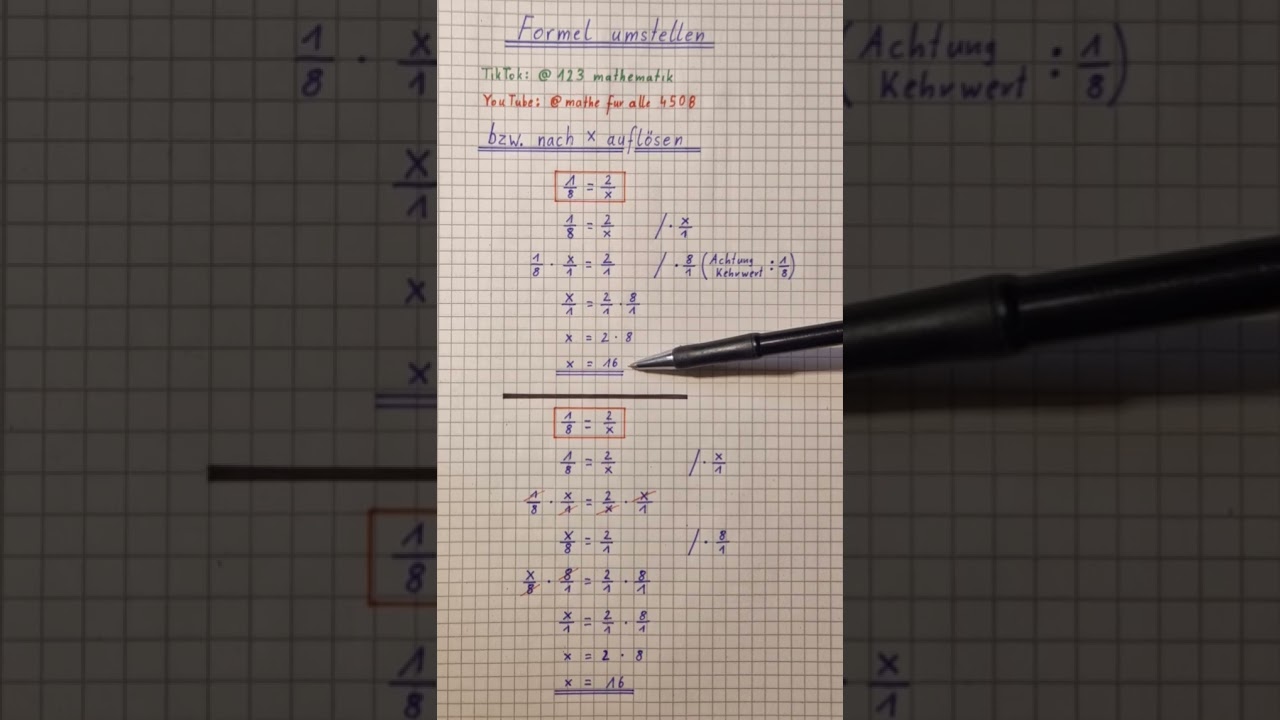 Formel umstellen
TikTok: @ 123 mathematik
YouTube: @ mathe für alle 4508
bzw. nach x auflösen
1/8 = 2/x
1/8 = 2/x / · x/1
1/8 · x/1 = 2/1 / · 8/1 (Achtung Kehrwert : 1/8)
x/1 = 2/1 · 8/1
x = 2 · 8
x = 16
1/8 = 2/x
1/8 = 2/x / · x/1
1/8 · x/1 = 2/x · x/1
x/8 = 2/1 / · 8/1
x/8 · 8/1 = 2/1 · 8/1
x/1 = 2/1 · 8/1
x = 2 · 8
x = 16